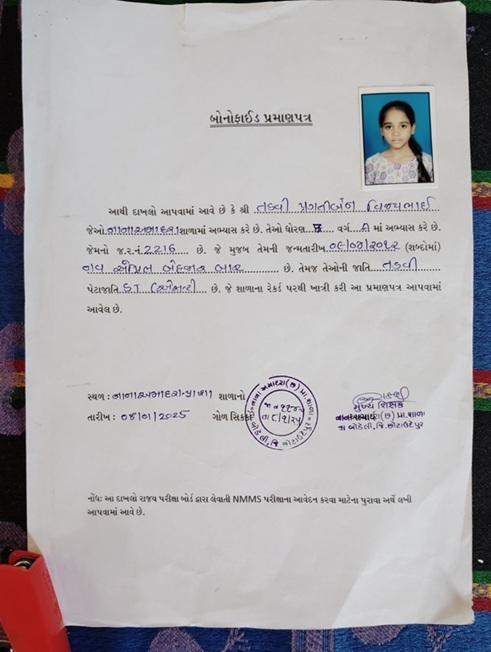 બોનોફાઈડ પ્રમાણપત્ર
આથી દાખલો આપવામાં આવે છે કે શ્રી તડવી પ્રગતીબેન વિજયભાઈ
જેઓ નાનાઅમાદરા શાળામાં અભ્યાસ કરે છે. તેઓ ધોરણ વર્ગ માં અભ્યાસ કરે છે.
જેમનો જ.ર.નં 2216 છે. જે મુજબ તેમની જન્મતારીખ ૦૯/૦૪/૨૦૧૨ (શબ્દોમાં)
નવ એપ્રિલ બેહજાર બાર છે. તેમજ તેઓની જાતિ તડવી
પેટાજાતિ ST છે. જે શાળાના રેકર્ડ પરથી ખાત્રી કરી આ પ્રમાણપત્ર આપવામાં
આવેલ છે.
સ્થળ : શાળાનો
તારીખ : 08/01/2025 ગોળ સિક્કો
મુખ્ય શિક્ષક
નાનાઅમાદરા(છ) પ્રા.શાળા
તા બોડેલી,જિ.છોટાઉદેપુર
નોધઃ આ દાખલો રાજય પરીક્ષા બોર્ડ દ્વારા લેવાતી NMMS પરીક્ષાના આવેદન કરવા માટેના પુરાવા અર્થે લખી
આપવામાં આવે છે.